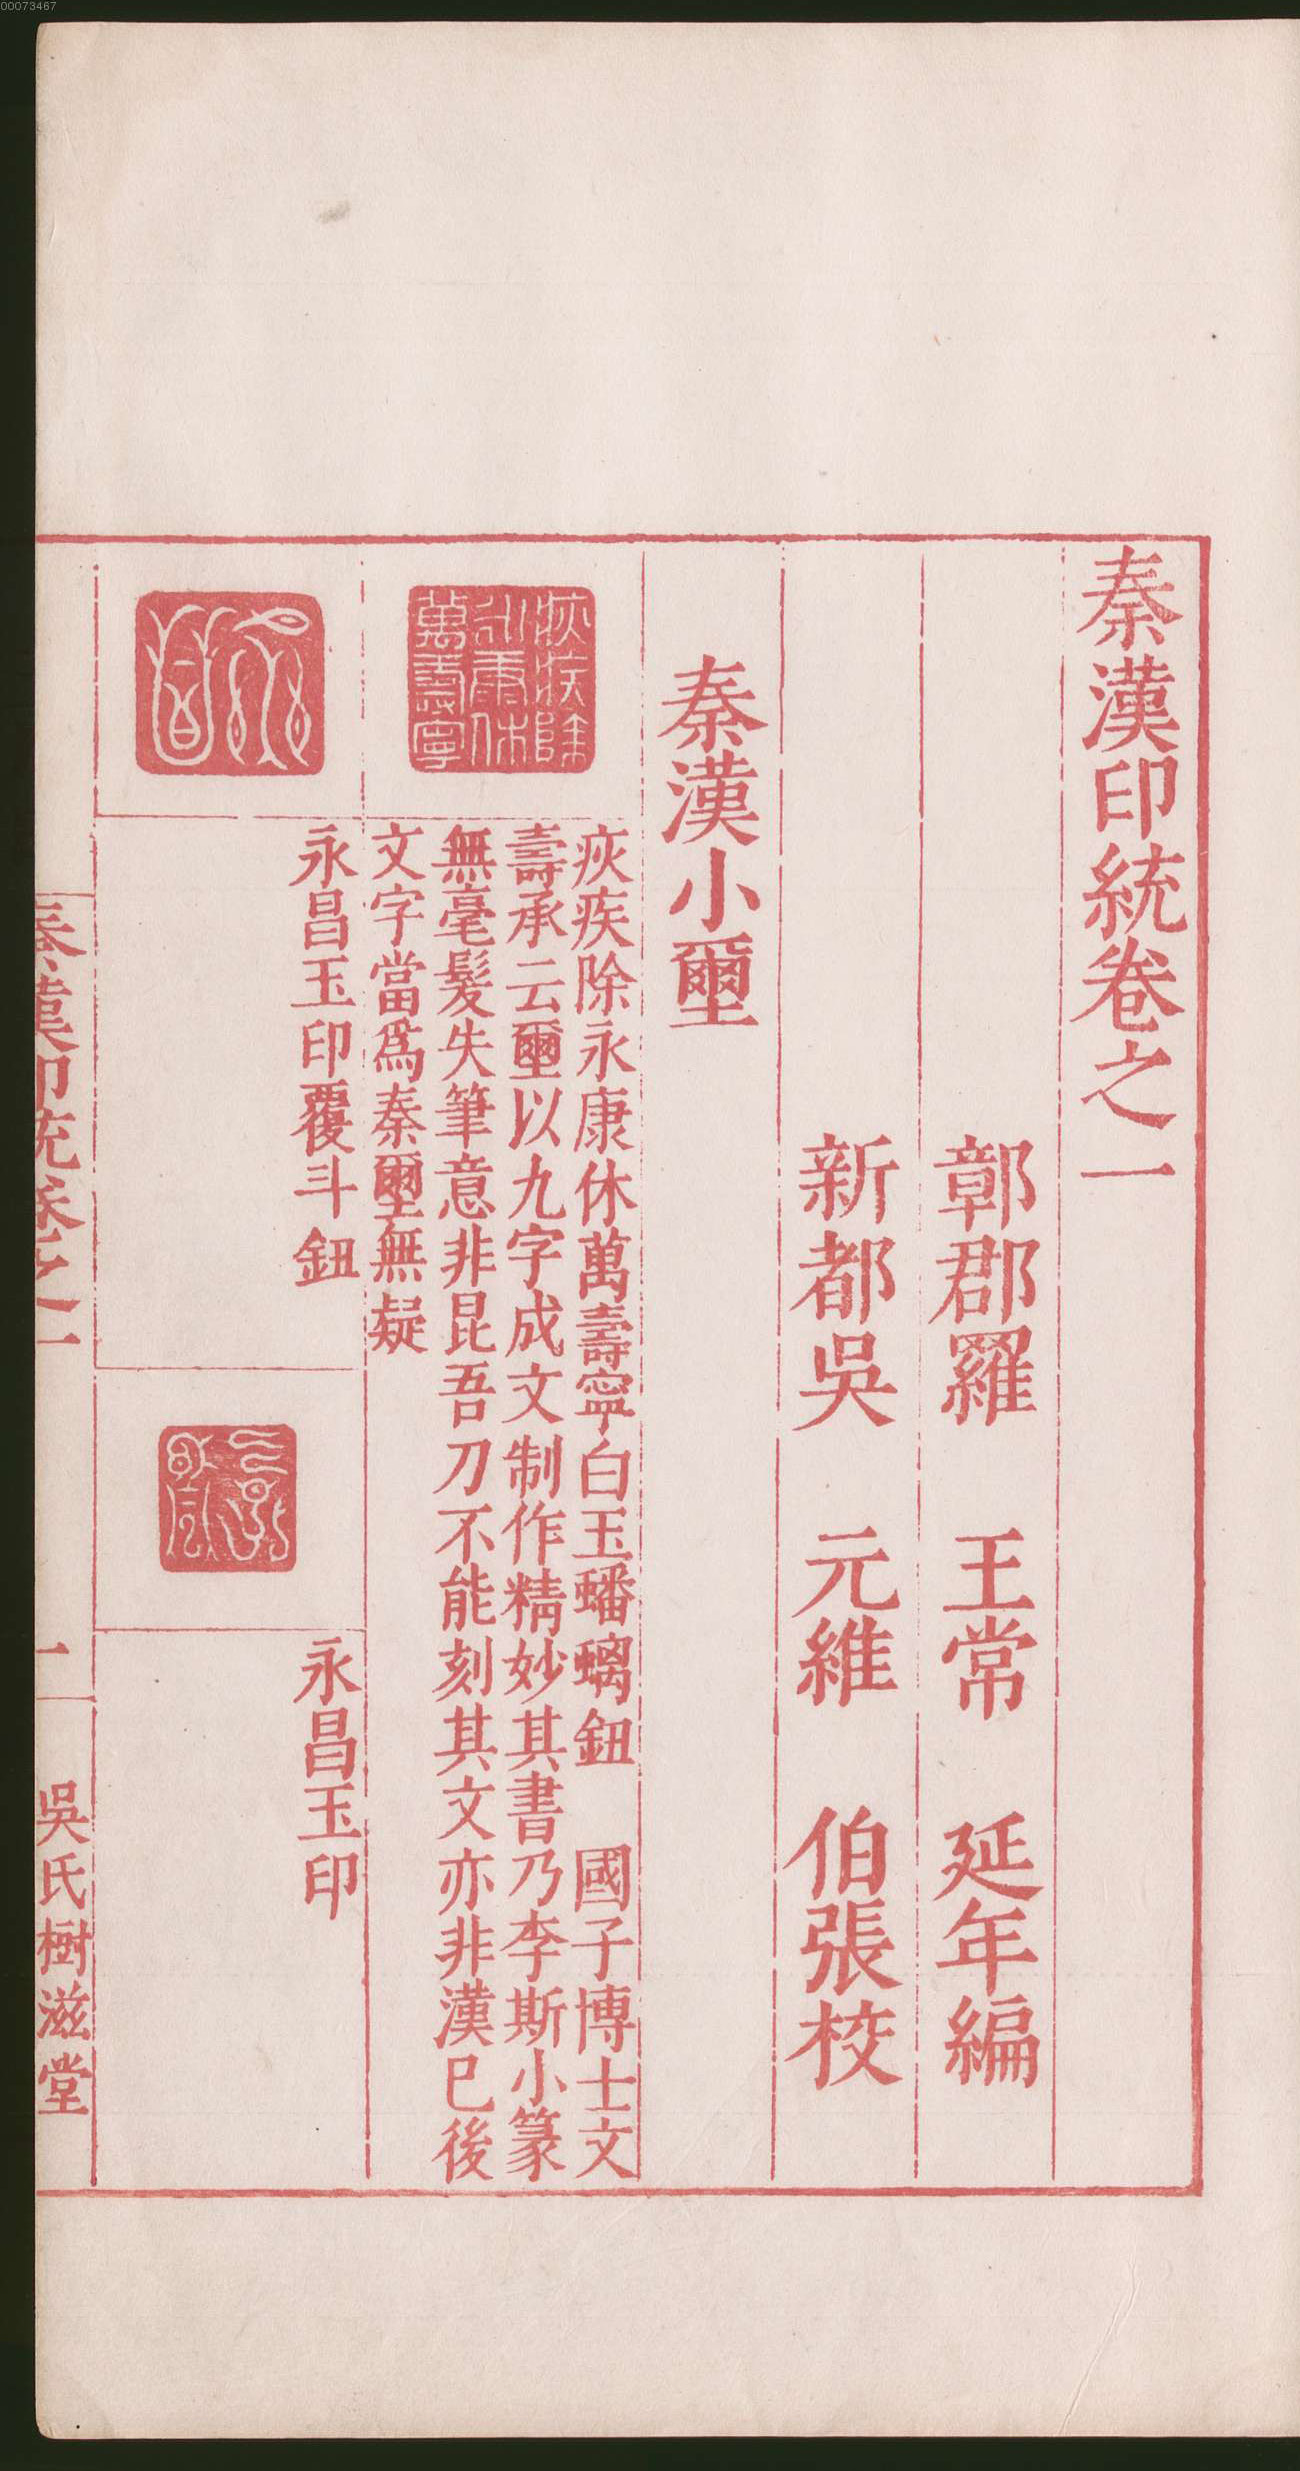 00073467
秦漢印統卷之一
鄣郡羅　王常　延年編
新都吳　元維　伯張校
秦漢小壐
疢疾除永康休萬壽寧
疢疾除永康休萬壽寧白玉蟠螭鈕　國子博士文
壽承云壐以九字成文制作精妙其書乃李斯小篆
無毫髮失筆意非昆吾刀不能刻其文亦非漢巳後
文字當爲秦壐無疑
永昌
永昌玉印覆斗鈕
永昌玉印
秦漢印統卷之一
一
吳氏樹滋堂